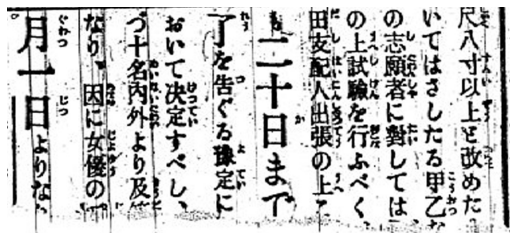 尺八寸以上と改めた
いてはさしたる甲乙な
の志願者に對しては
の上試驗を行ふべく、
田支配人出張の上
二十日まで
了を告ぐる豫定に
おいて決定すべし、
づ十名內外より及
なり、因に女優の
月一日よりな